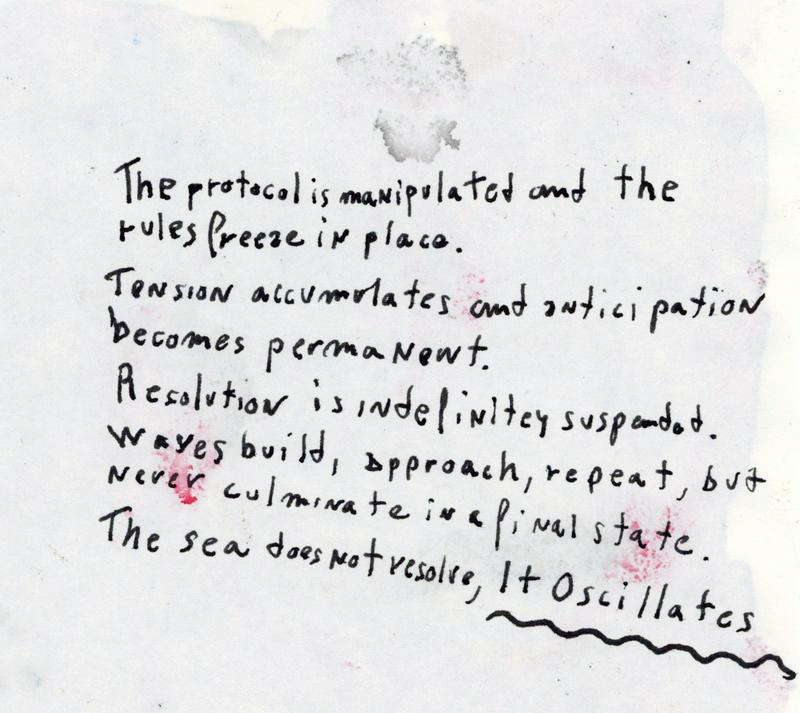 The protocol is manipulated and the
rules freeze in place.
Tension accumulates and anticipation
becomes permanent.
Resolution is indefinitey suspended.
Waves build, approach, repeat, but
never culminate in a final state.
The sea does not resolve, It Oscillates